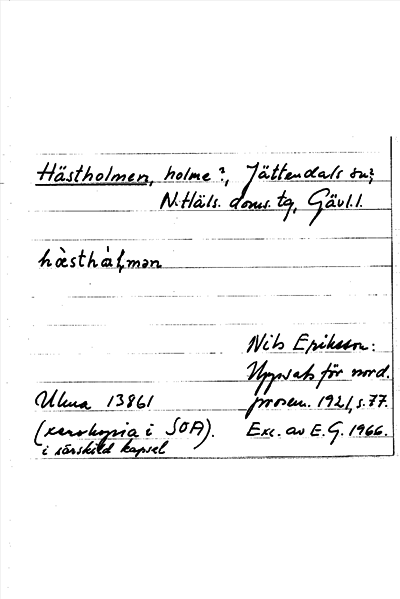 Hästholmen, holme?, Jättendals sn?,
N. Häls. doms. tg, Gävl. l.
hàsthàḷmən
Nils Eriksson:
Uppsats för nord.
Ulma 13861
prosem. 1921, s. 77.
(xerokopia i SOA).
Exc. av E. G. 1966.
i särskild kapsel